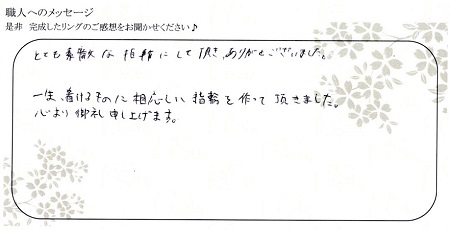 職人へのメッセージ
是非 完成したリングのご感想をお聞かせください♪
とても素敵な指輪にして頂き、ありがとうございました。
一生、着けるものに相応しい指輪を作って頂きました。
心より御礼申し上げます。